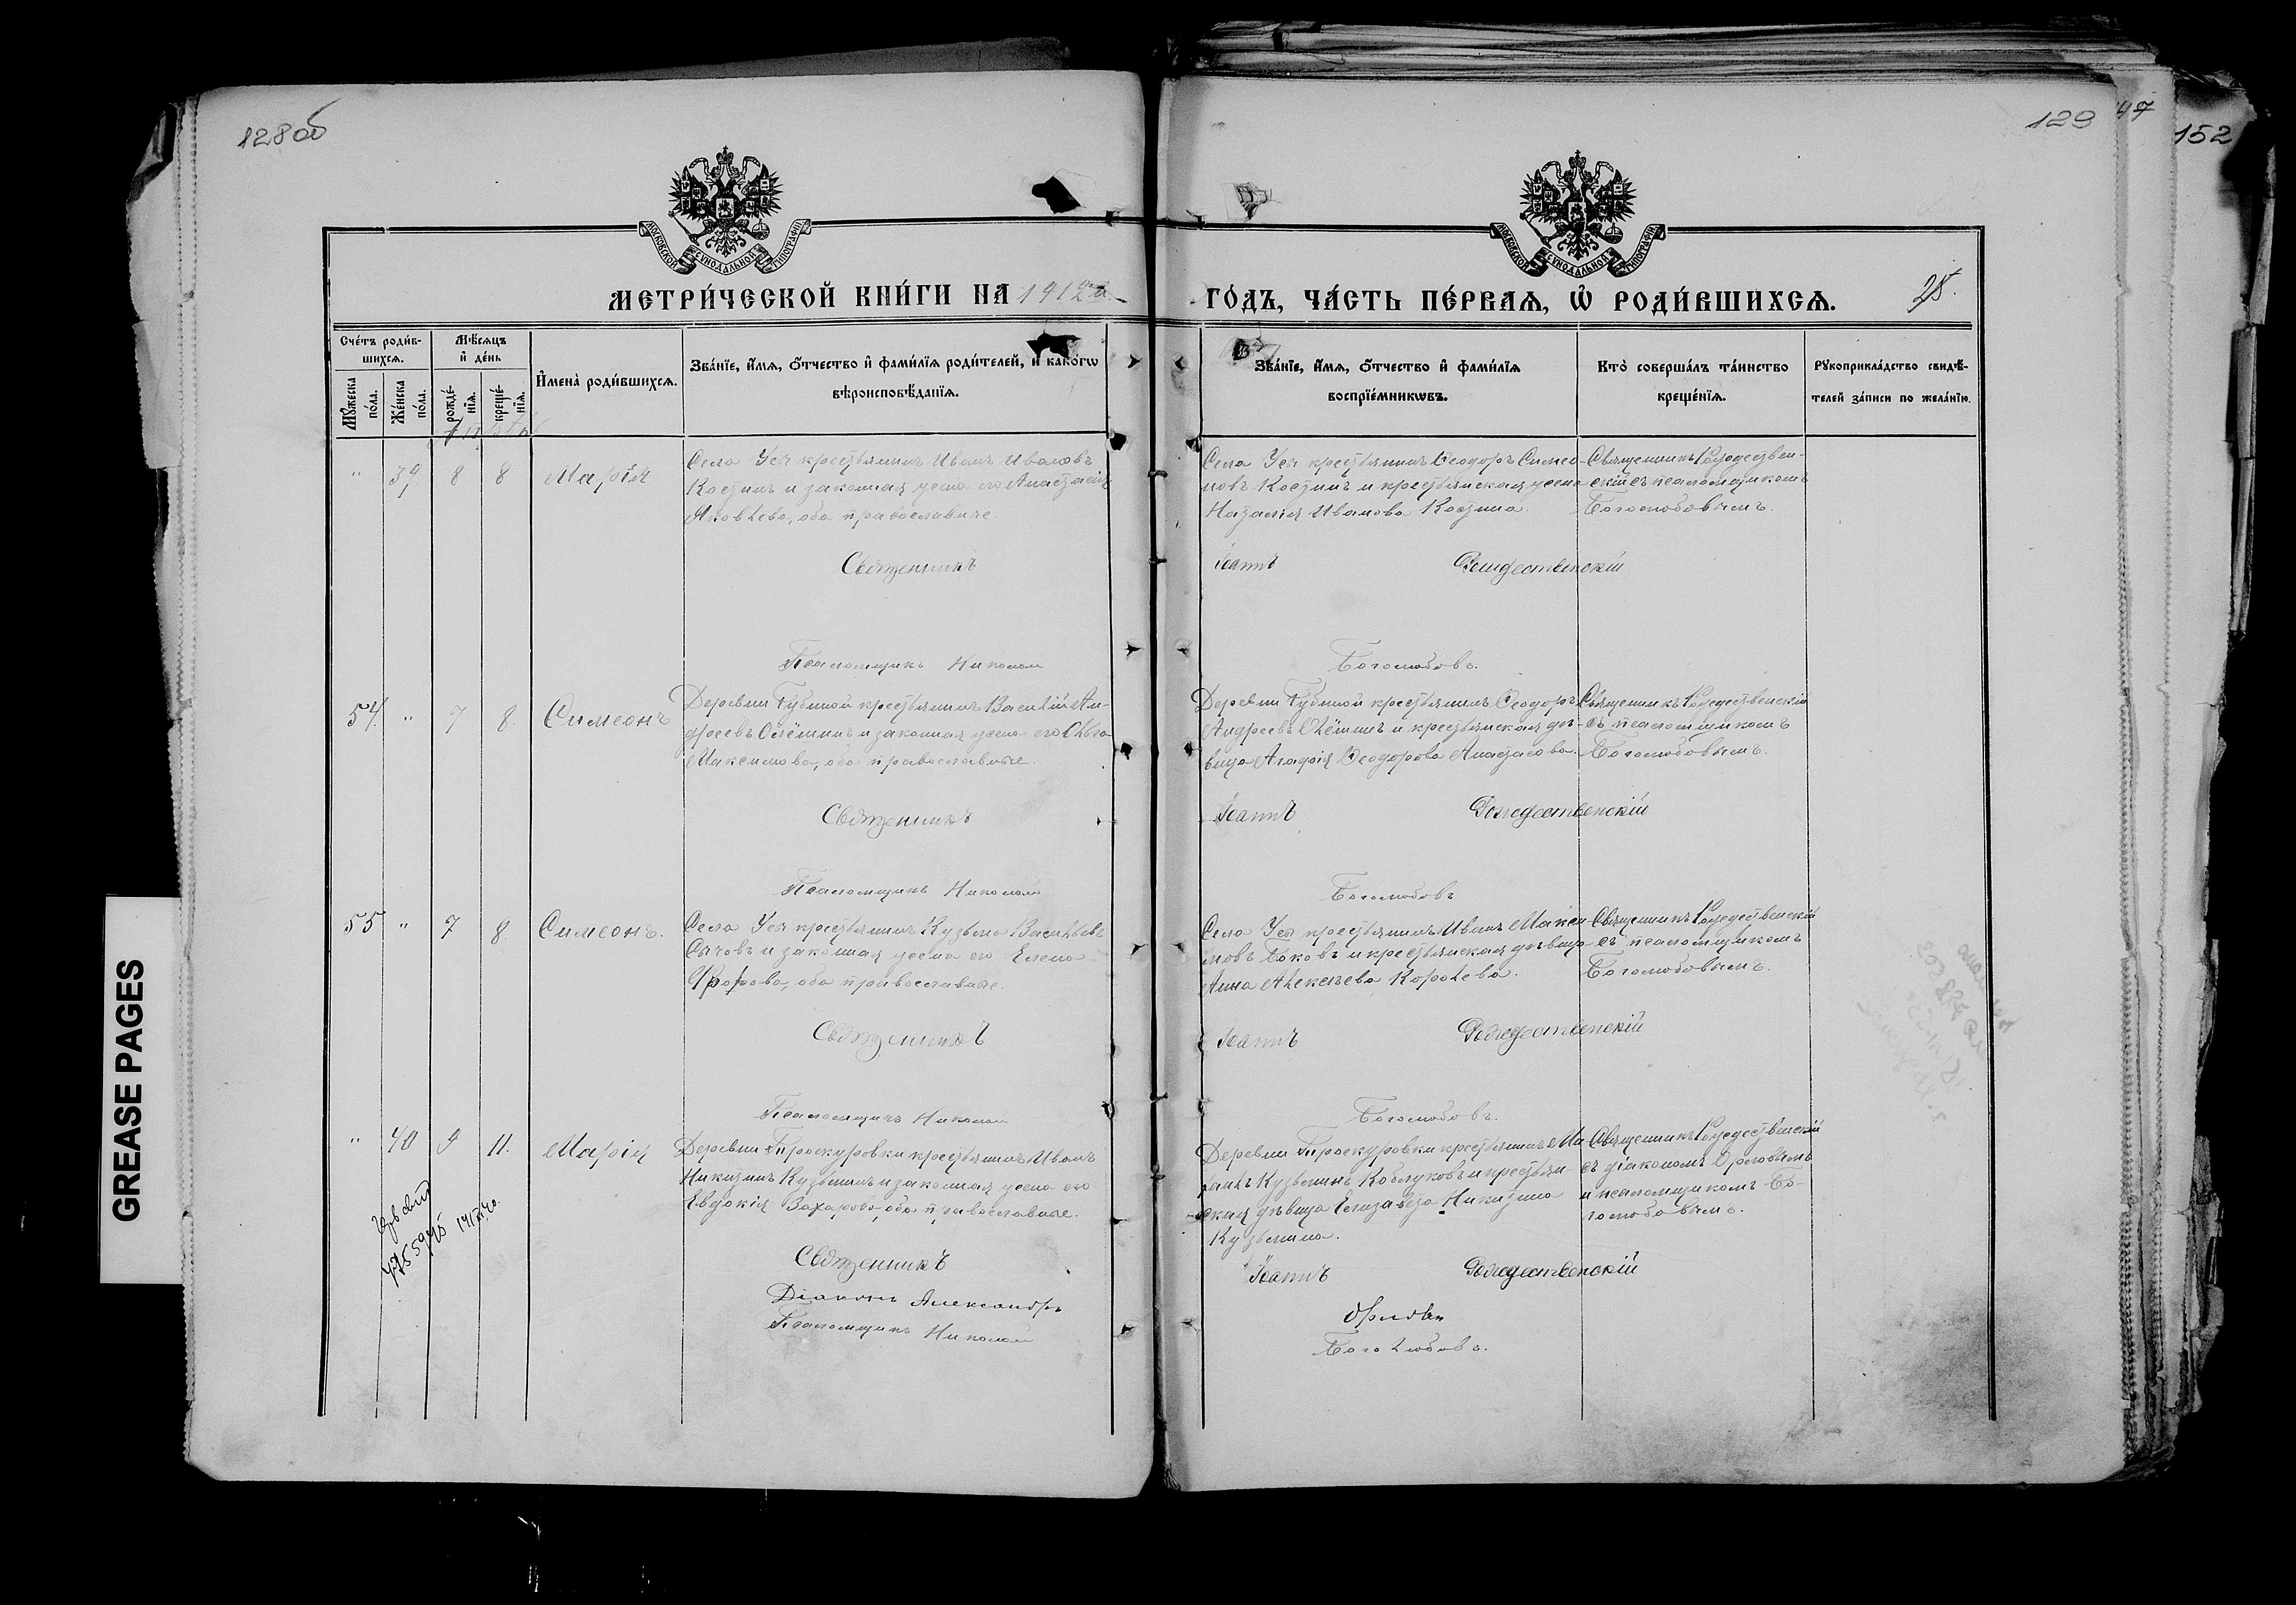 128об
129
152
МЕТРИ́ЧЕСКОЙ КНИ́ГИ НА 1912 й
ГО́ДЪ, ЧА́СТЬ ПЕ́РВАѦ, Ѽ РОДИ́ВШИХСѦ.
28.
Сче́тъ роди́в-
шихсѧ.
Мѣ́сѧцъ
и҆ де́нь
Мꙋ́жеска
по́ла.
Же́нска
по́ла.
рожде́-
нїѧ.
креще́-
нїѧ.
И҆мена̀ роди́вшихсѧ.
Зва́нїе, и҆́мѧ, ѻ҆́тчество и҆ фами́лїѧ роди́телей, и҆ како́гѡ
вѣроисповѣ́данїѧ.
Зва́нїе, и҆́мѧ, ѻ҆́тчество и҆ фами́лїѧ
воспрїе́мникѡвъ.
Кто̀ соверша́лъ та́инство
креще́нїѧ.
Рꙋкоприкла́дство свидѣ́-
телей за́писи по жела́нїю.
" 39 8 8 Марія
Села Усы крестьянинъ Иванъ Ивановъ
Костинъ и законная жена его Анастасія
Яковлева, оба православные.
Села Усы крестьянинъ Ѳеодоръ Симео-
новъ Костинъ и крестьянская жена
Наталія Иванова Костина.
Священникъ Рождествен-
скій съ псаломщикомъ
Боголюбовымъ.
Священникъ Іоаннъ Рождественскій
Псаломщикъ Николай Боголюбовъ.
54. " 7 8. Симеонъ
Деревни Губиной крестьянинъ Василій Ан-
дреевъ Олёшинъ и законная жена его Ольга
Максимова, оба православные.
Деревни Губиной крестьянинъ Ѳеодоръ
Андреевъ Олёшинъ и крестьянская дѣ-
вица Агафія Ѳеодорова
Священникъ Рождественскій
съ псаломщикомъ
Боголюбовымъ.
Священникъ Іоаннъ Рождественскій
Псаломщикъ Николай Боголюбовъ
55 " 7 8. Симеонъ.
Села Усы крестьянинъ Кузьма Васильевъ
Сычовъ и законная жена его Елена
Фролова, оба православные.
Села Усы крестьянинъ Иванъ Макси-
мовъ Боковъ и крестьянская дѣвица
Анна Алексѣева Королева.
Священникъ Рождественскій
съ псаломщикомъ
Боголюбовымъ.
Священникъ Іоаннъ Рождественскій
Псаломщикъ Николай Боголюбовъ.
" 40 9 11. Марія
Деревни Проскуровки крестьянинъ Иванъ
Никитинъ Кузьминъ и законная жена его
Евдокія Захарова, оба православные.
Деревни Проскуровки крестьянинъ
Кузьминъ Коблуковъ и крестьян-
ская дѣвица Елизавета Никитина
Кузьмина.
Священникъ Рождественскій
съ діакономъ Орловымъ
и псаломщикомъ Бо-
голюбовымъ.
Священникъ Іоаннъ Рождественскій
Діаконъ Александръ Орловъ
Псаломщикъ Николай Боголюбовъ.
GREASE PAGES